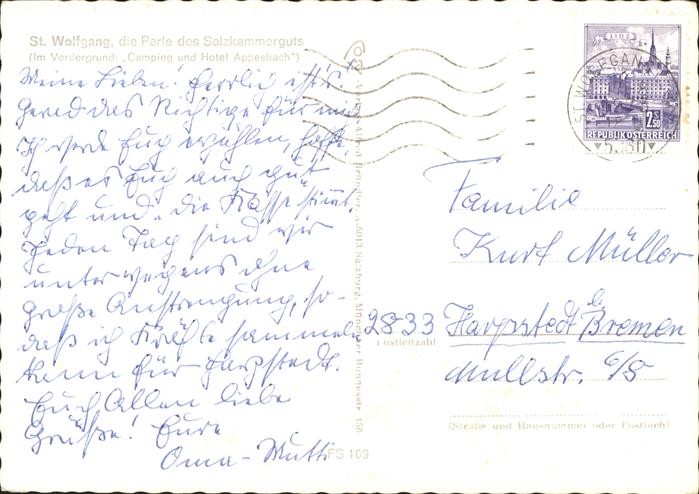 St. Wolfgang, die Perle des Salzkammerguts
(Im Vordergrund: „Camping und Hotel Appesbach")
Meine Lieben! Herrlich ist's
gerad das Richtige für mich
Ich werde Euch erzählen, hoffe,
daß es Euch auch gut
geht und „die Kasse stimmt.
Jeden Tag sind wir
unterwegs ohne
große Anstrengung, so-
daß ich Kräfte sammeln
kann für Harpstedt.
Euch Allen liebe
Grüße! Eure
Oma-Mutti
FS 109
Salzburg, Münchner Bundesstr. 156
LINZ
2.50
REPUBLIK ÖSTERREICH
ST. WOLFGANG
Familie
Kurt Müller
2833 Harpstedt b. Bremen
Postleitzahl
Mullstr. 6/8
(Straße und Hausnummer oder Postfach)